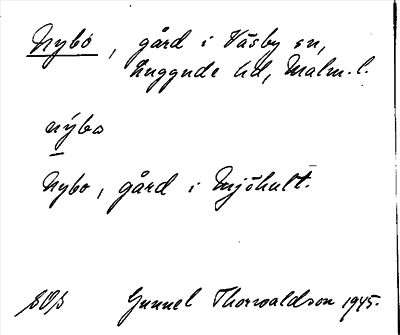 Nybo, gård i Väsby sn,
Luggude hd, Malm. l.
nýbo
Nybo, gård i Mjöhult.
Gunnel Thorwaldson 1945.